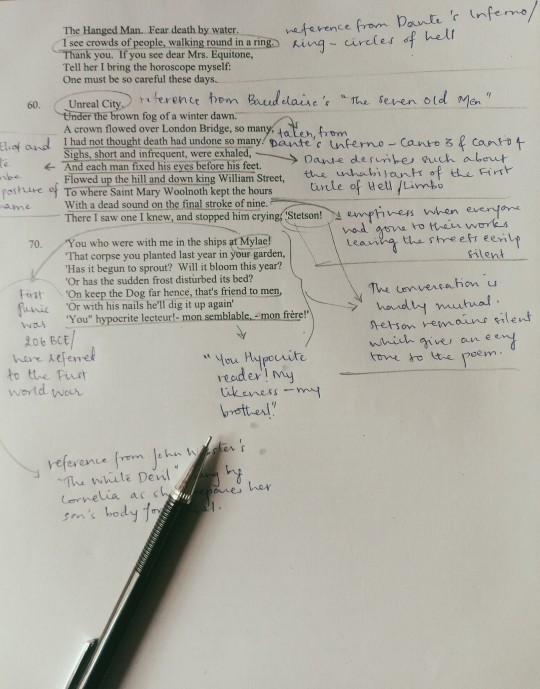 The Hanged Man.  Fear death by water.
I see crowds of people, walking round in a ring.
Thank you.  If you see dear Mrs. Equitone,
Tell her I bring the horoscope myself:
One must be so careful these days.
reference from Dante's Inferno/
ring - circles of hell
60. Unreal City,
reference from Baudelaire's "The Seven Old Men"
Under the brown fog of a winter dawn.
A crown flowed over London Bridge, so many,
I had not thought death had undone so many.
Sighs, short and infrequent, were exhaled,
And each man fixed his eyes before his feet.
Flowed up the hill and down king William Street,
To where Saint Mary Woolnoth kept the hours
With a dead sound on the final stroke of nine.
There I saw one I knew, and stopped him crying; 'Stetson!
taken from
Dante's Inferno - Canto 3 & Canto 4
Dante describes such about
the inhabitants of the First
Circle of Hell/Limbo
Eliot and
posture of
emptiness when everyone
had gone to their works
leaving the streets eerily
silent
70. 'You who were with me in the ships at Mylae!
'That corpse you planted last year in your garden,
'Has it begun to sprout?  Will it bloom this year?
'Or has the sudden frost disturbed its bed?
'On keep the Dog far hence, that's friend to men,
'Or with his nails he'll dig it up again'
'You" hypocrite lecteur!- mon semblable, - mon frère!'
The conversation is
hardly mutual.
Stetson remains silent
which gives an eery
tone to the poem.
First
Punic
war
206 BCE/
here referred
to the First
world war
"You Hypocrite
reader! My
likeness - my
brother!"
reference from John
"The White Devil" by
Cornelia as her
son's body